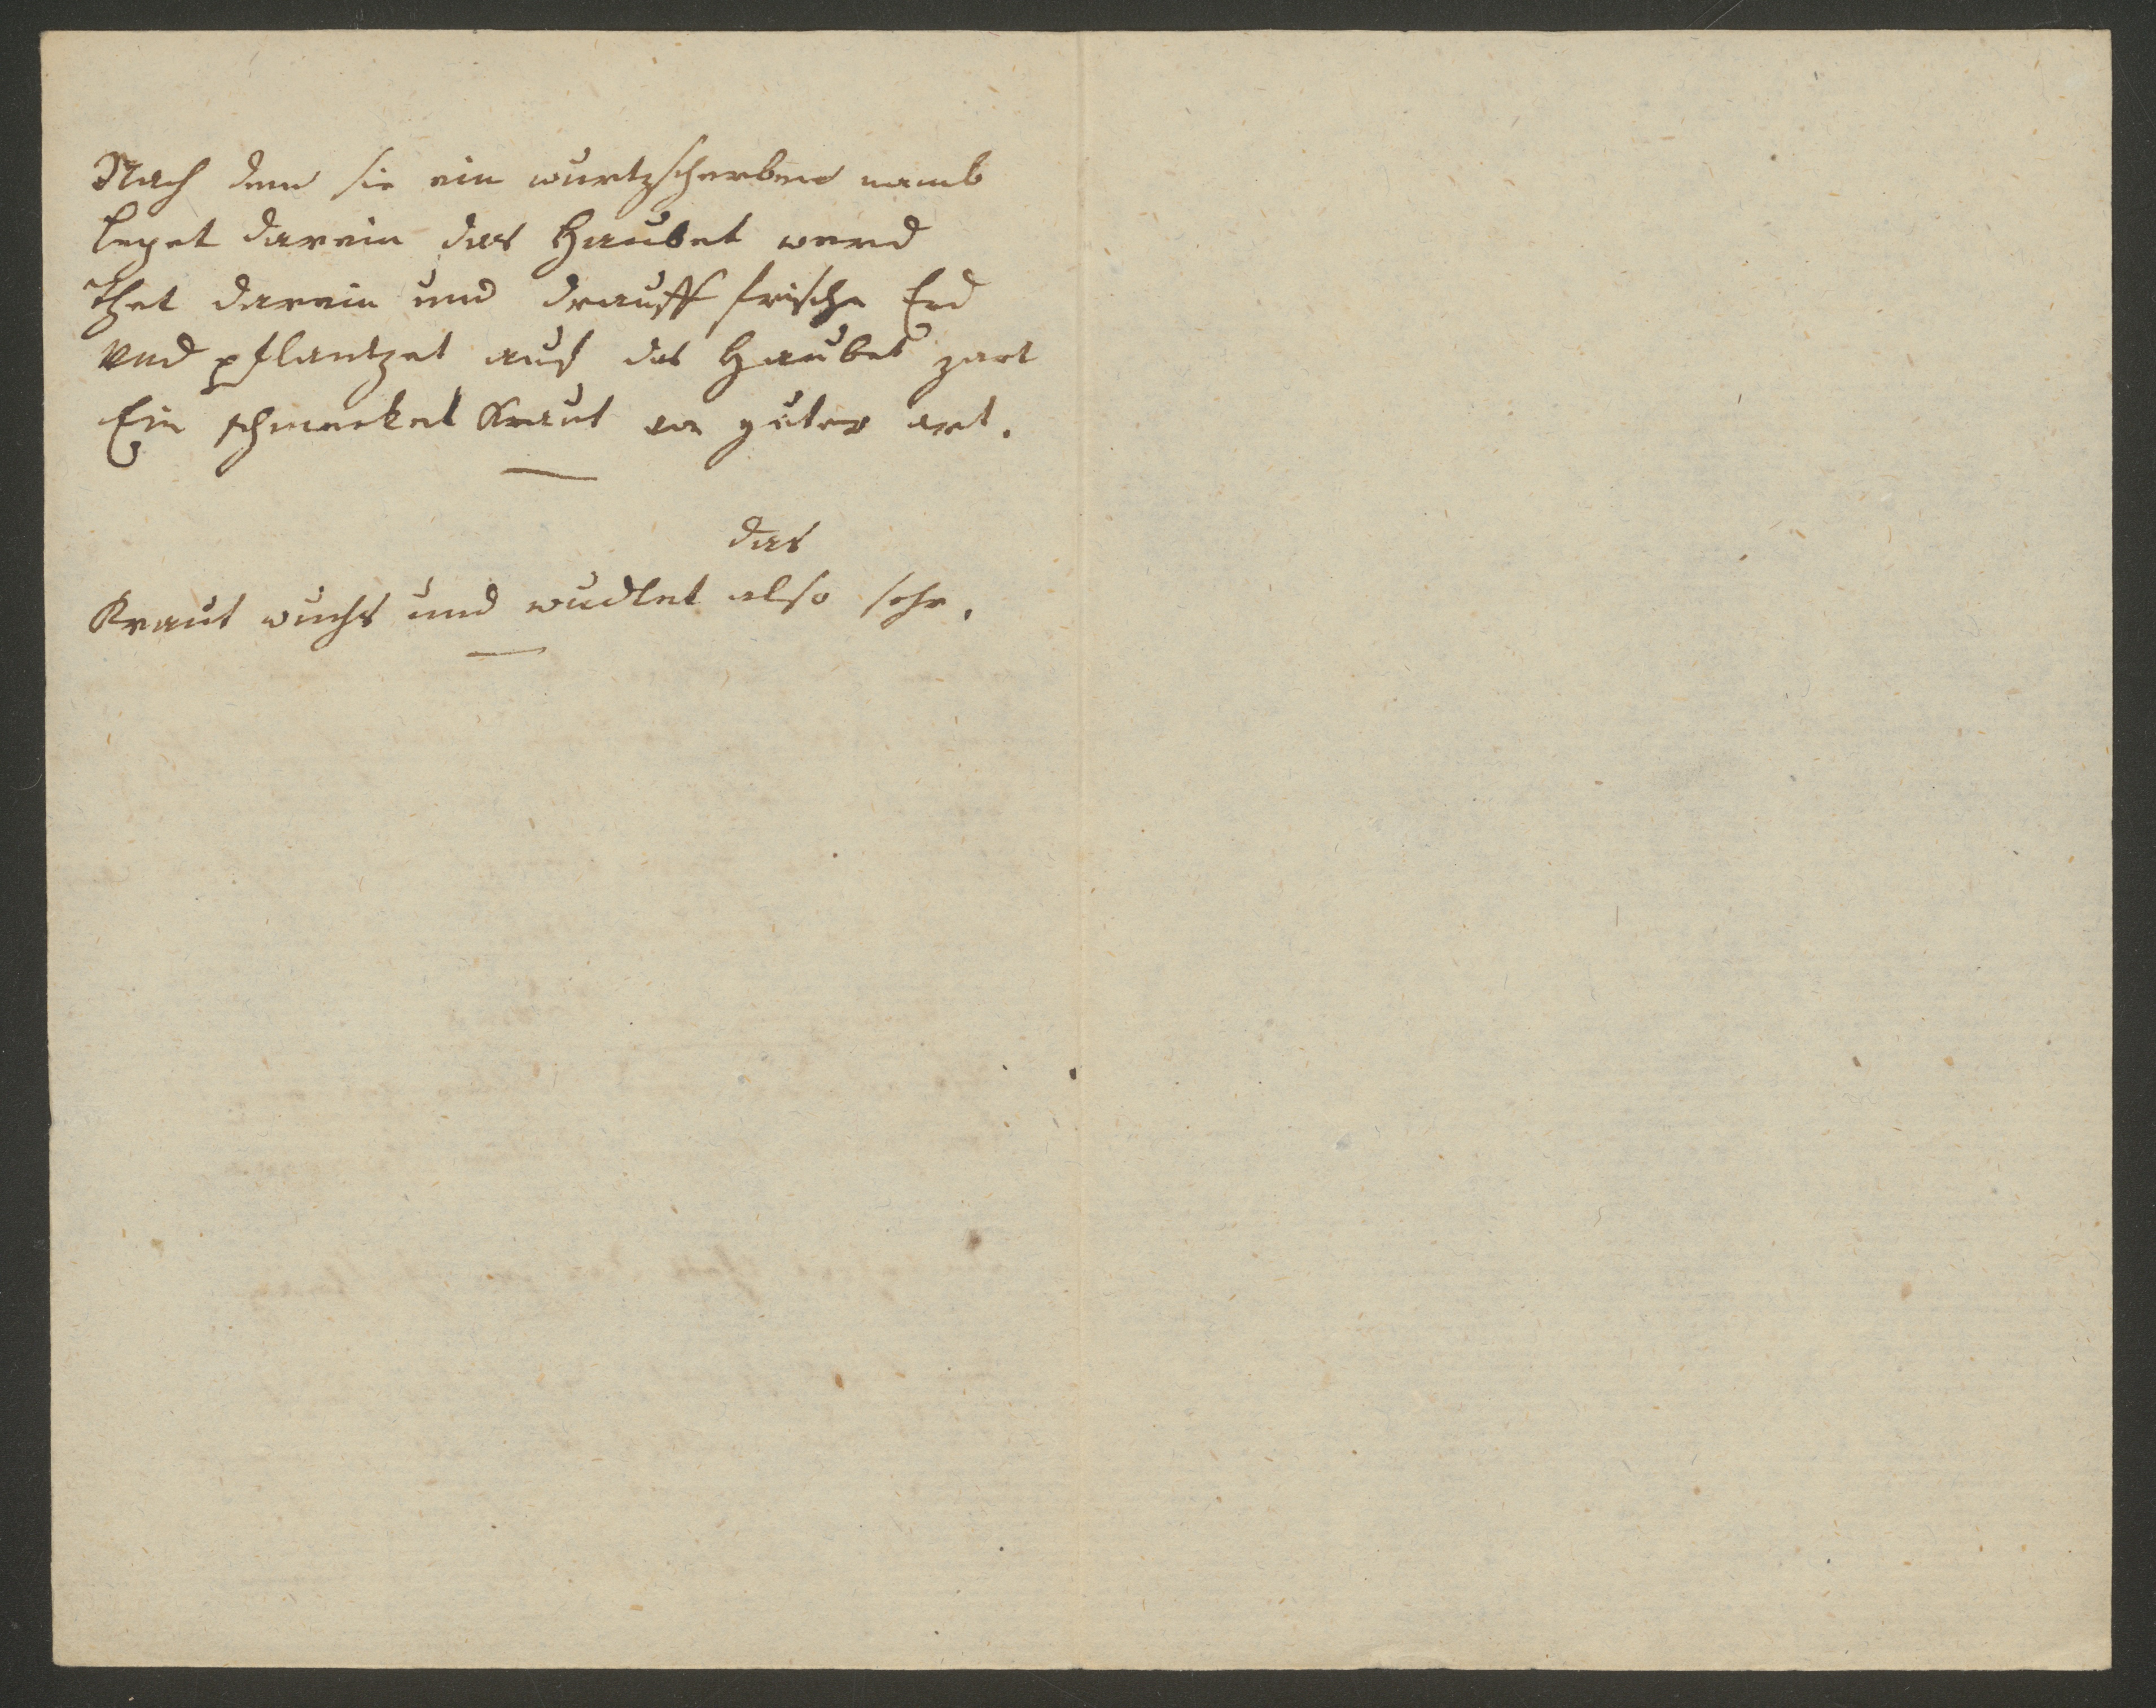 Nach dem sie ein wurtzscherben namb
leget darein das Haubet werd
thet darein und drauff frische Erd
und pflantzet auf das Haubet zart
Ein schmecket Kraut von guter art.
das
Kraut wuchs und wudlet also sehr.